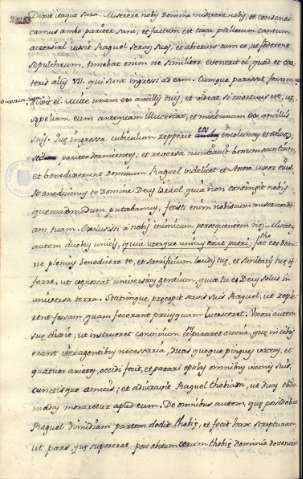 Dixit itaque Sara. Miserere nobis Domine miserere nobis, et consenes-
camus ambo pariter sani, et factum est circa pullorum cantum
accersiri iussit Raguel servos suos, et abierunt cum eo, ut foderent
sepulchrum, timebat enim ne similiter evenerit ei, quod et cae-
teris aliis VII. qui sunt ingressi ad eam. Cumque parassent foveam
dixit ei. Mitte unam ex ancillis tuis, et videat si mortuus est, ut
sepeliam eum antequam illucescat, et misit unam ex ancillis
suis. Quae ingressa cubiculum repperit eos incolumes
pariter dormientes, et reversa nuntiavit bonum nuntium,
et benedixerunt dominum Raguel videlicet et Anna
Benedicimus te Domine Deus Israel quia non contigit nobis
quemadmodum putabamus, fecisti enim nobiscum misericordi-
am tuam. Exclusisti a nobis inimicum persequentem nos. Misertus
autem duobus unicis, fac eos Domi-
ne plenius benedicere te, et sacrificium laudis tuae, et sanitatis suae of-
ferre, ut cognoscat universitas gentium, quia tu es Deus solus in
universa terra. Statimque praecepit servis suis Raguel, ut reple-
rent fossam quam fecerant priusquam lucesceret. Uxori autem
suae dixit, ut instrueret convivium, et praepararet omnia, quae in cibos
erant iter agentibus necessaria, duas quoque pingues vaccas, et
quatuor arietes occidi fecit, et parari epulas omnibus vicinis suis,
cunctisque amicis, et adiuravit Raguel Thobiam, ut duas hebdo-
madas moraretur apud eum. De omnibus autem, quae possidebat
Raguel dimidiam partem dedit Thobiae, et fecit hanc scripturam,
ut pars, quae supererat, post obitum eorum Thobiae dominio deveniret